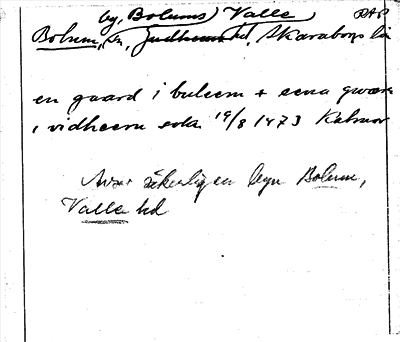 by, Bolums) Valle RAP
Bolum, sn, Gudhems hd, Skaraborgs län
en gaard i buleem + eena qwærn
i vidheem sok 19/8 1473 Kalmar
Avser säkerligen byn Bolum,
Valle hd